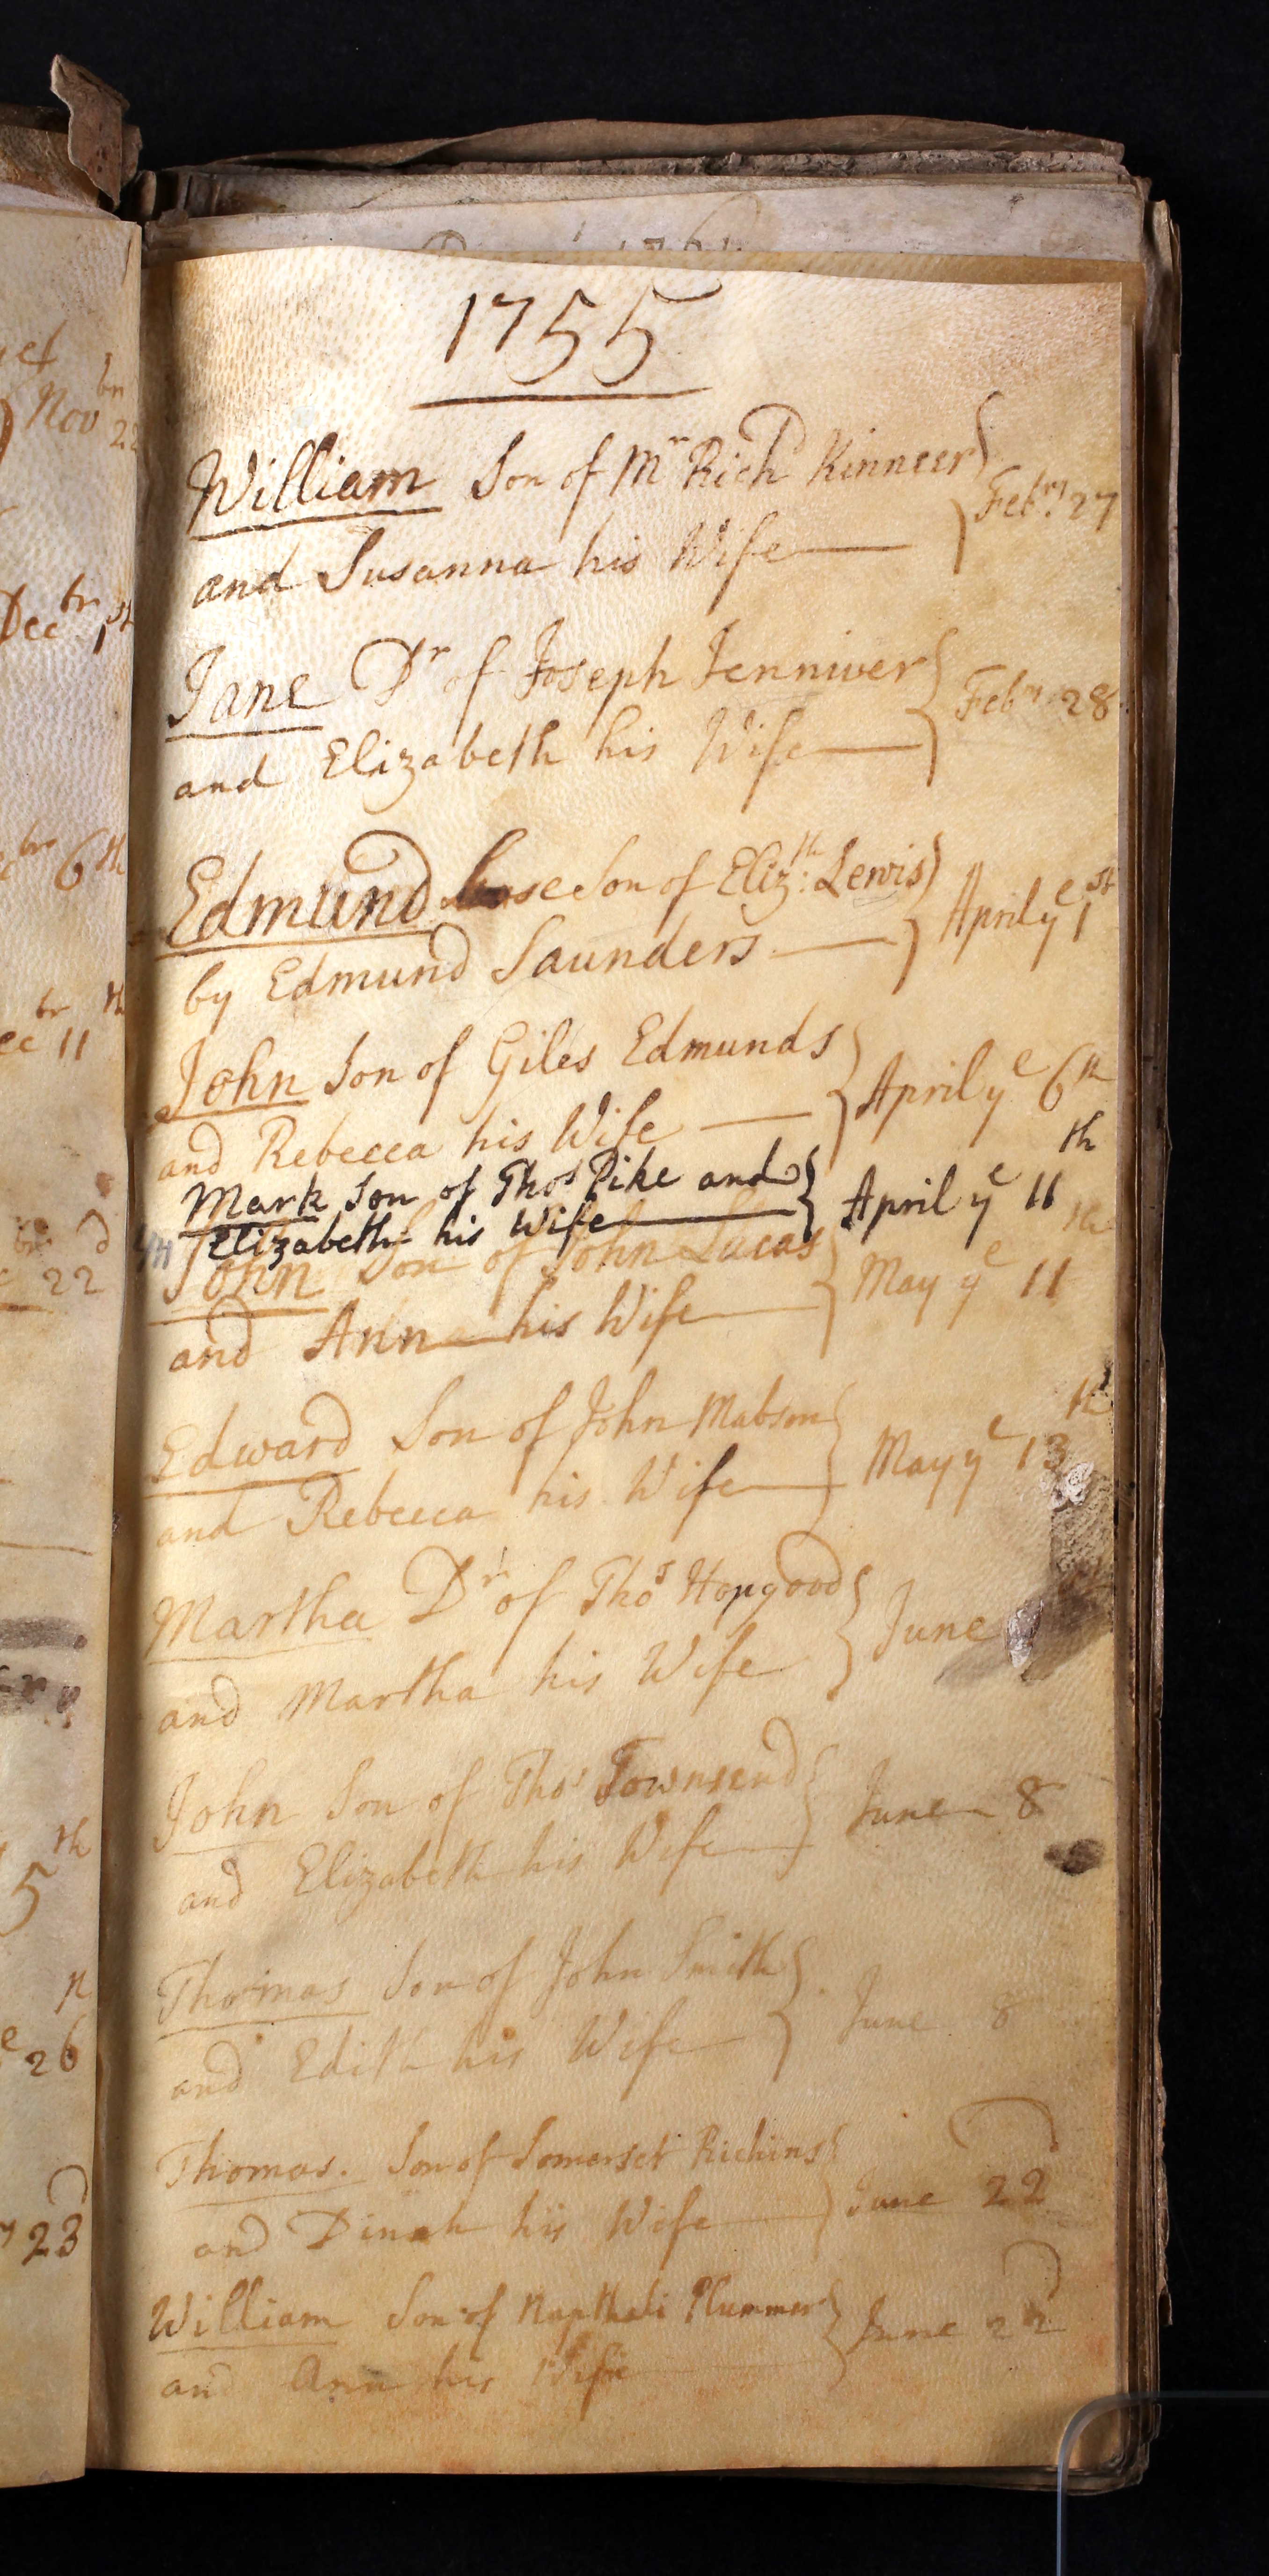 1755
William Son of Mr Richd Kinneer
and Susanna his Wife Febry 27
Jane Dr of Joseph Jenniver
and Elizabeth his Wife Febry 28
Edmund base Son of Elizth: Lewis
by Edmund Saunders April ye 1st
John Son of Giles Edmunds
and Rebecca his Wife April ye 6th
Mark Son of Thos Pike and
Elizabeth his Wife April ye 11th
John Son of John Lucas
and Ann his Wife May ye 11th
Edward Son of John Mabson
and Rebecca his Wife May ye 13th
Martha Dr of Thos Hopgood
and Martha his Wife June
John Son of Thos Townsend
and Elizabeth his Wife June 8
Thomas Son of John Smith
and Edith his Wife June 8
Thomas. Son of Somerset Richins
and Dinah his Wife June 22d
William Son of Napthali Plummer
and Ann his Wife June 22d